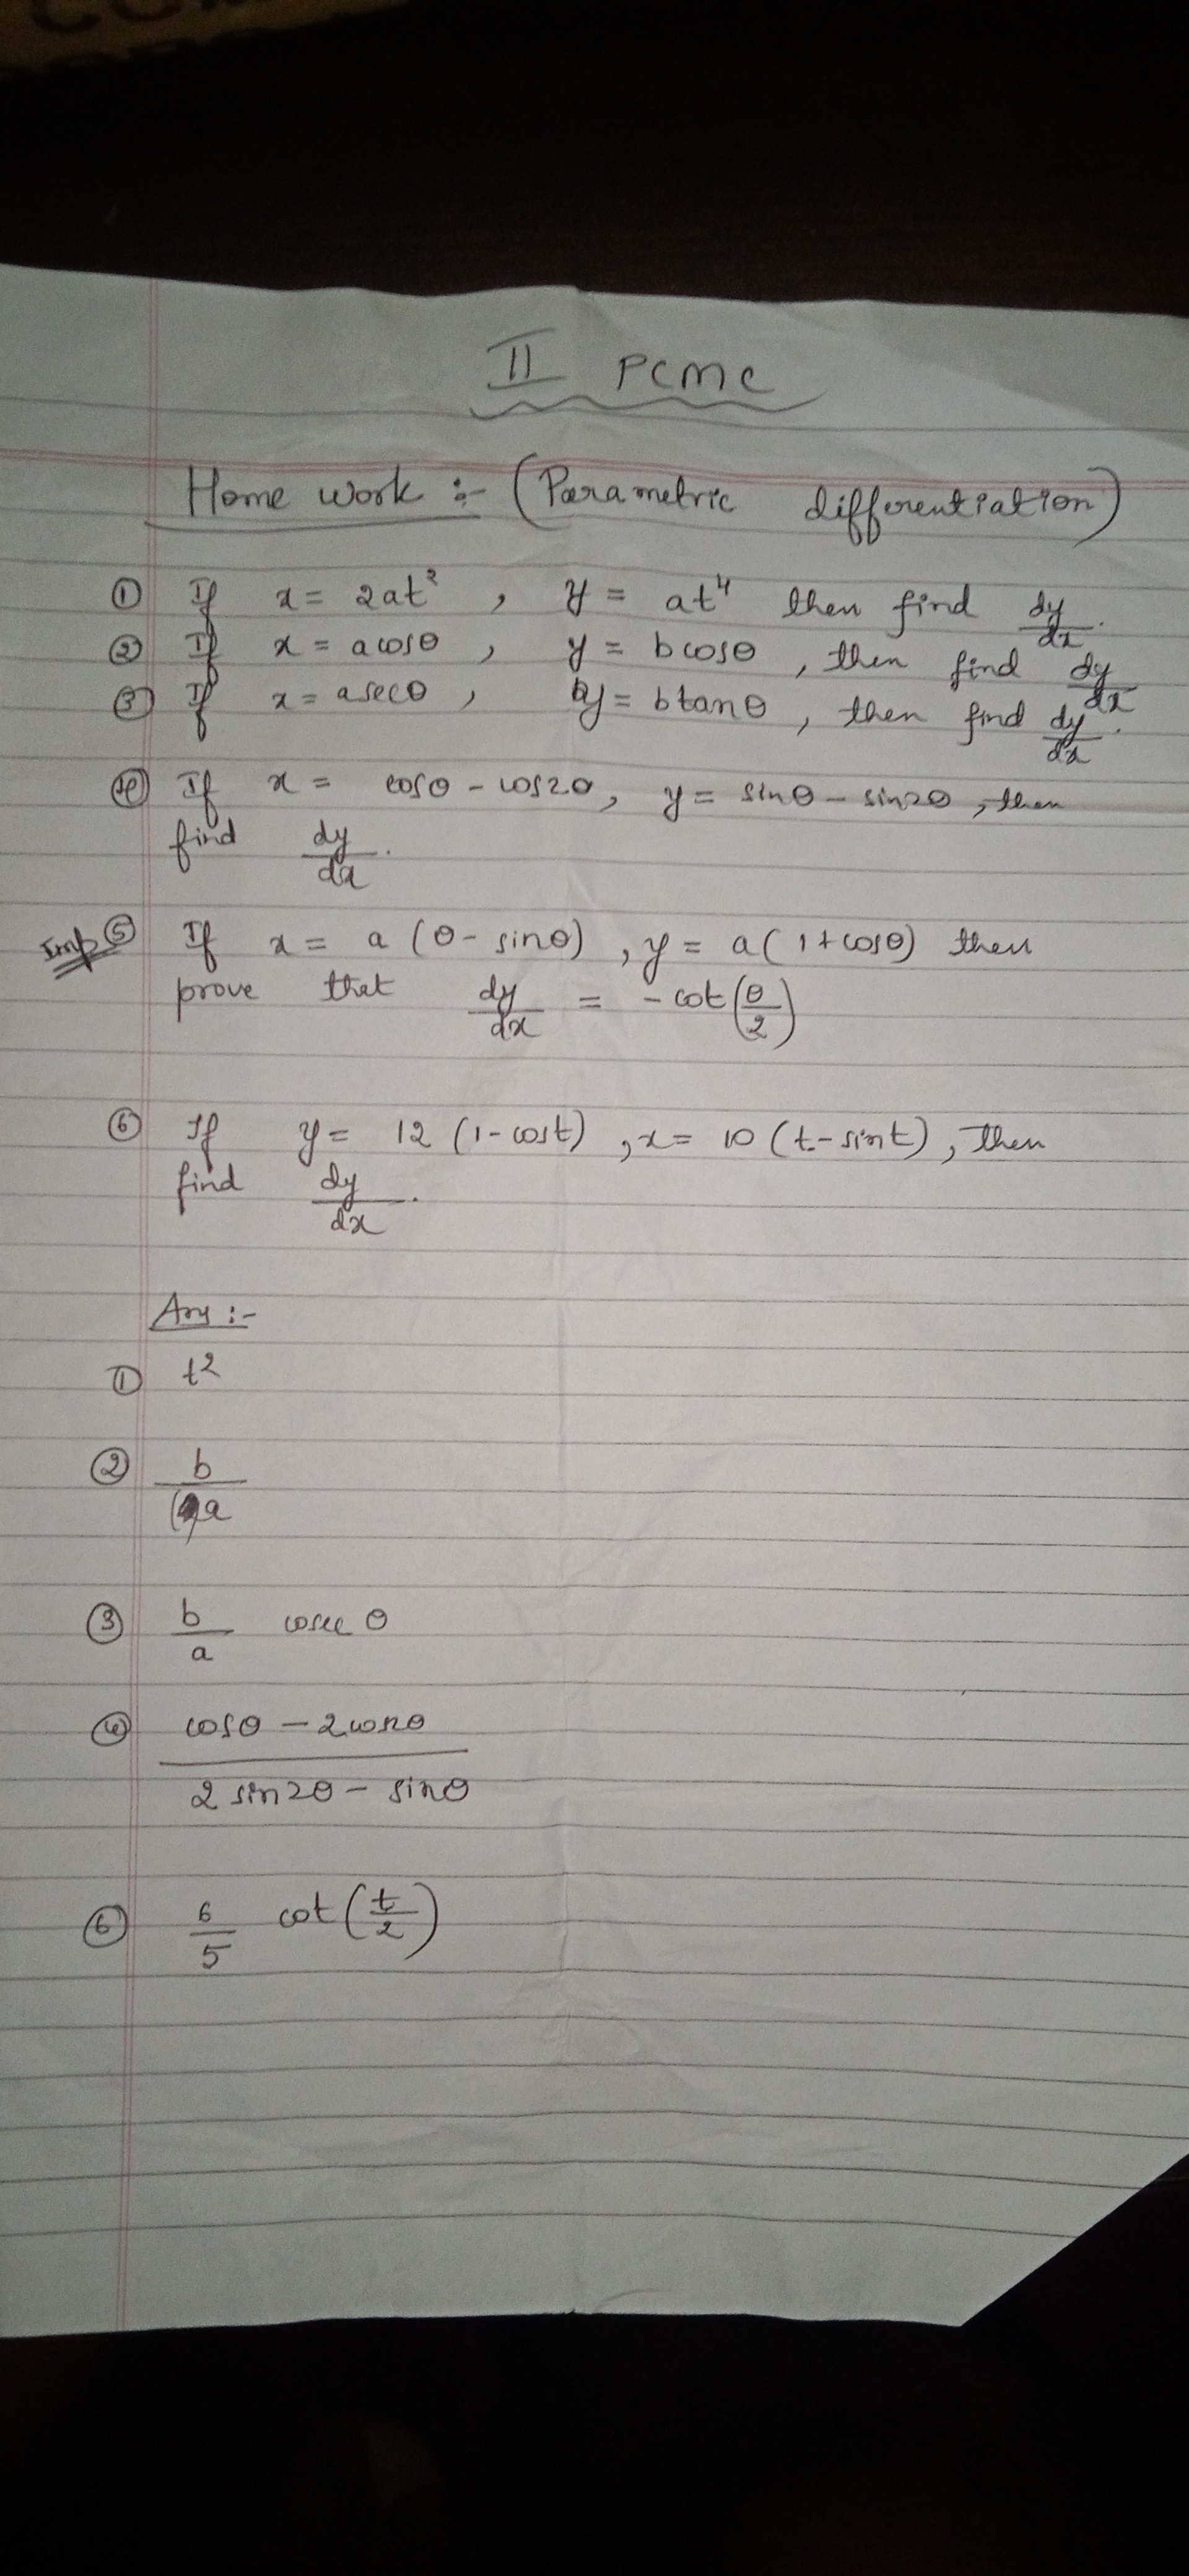 II PCMC
Home work :- (Parametric differentiation)
① If x = 2at², y = at⁴ then find dy/dx.
② If x = a cosθ, y = b cosθ, then find dy/dx
③ If x = a secθ, y = b tanθ, then find dy/dx.
④ If x = cosθ - cos2θ, y = sinθ - sin2θ, then
find dy/dx.
Imp ⑤ If x = a (θ - sinθ), y = a (1 + cosθ) then
prove that dy/dx = - cot (θ/2)
⑥ If y = 12 (1 - cost), x = 10 (t - sint), then
find dy/dx.
Ans :-
① t²
② b/a
③ b/a cosec θ
④ cosθ - 2cos2θ / 2 sin2θ - sinθ
⑥ 6/5 cot (t/2)